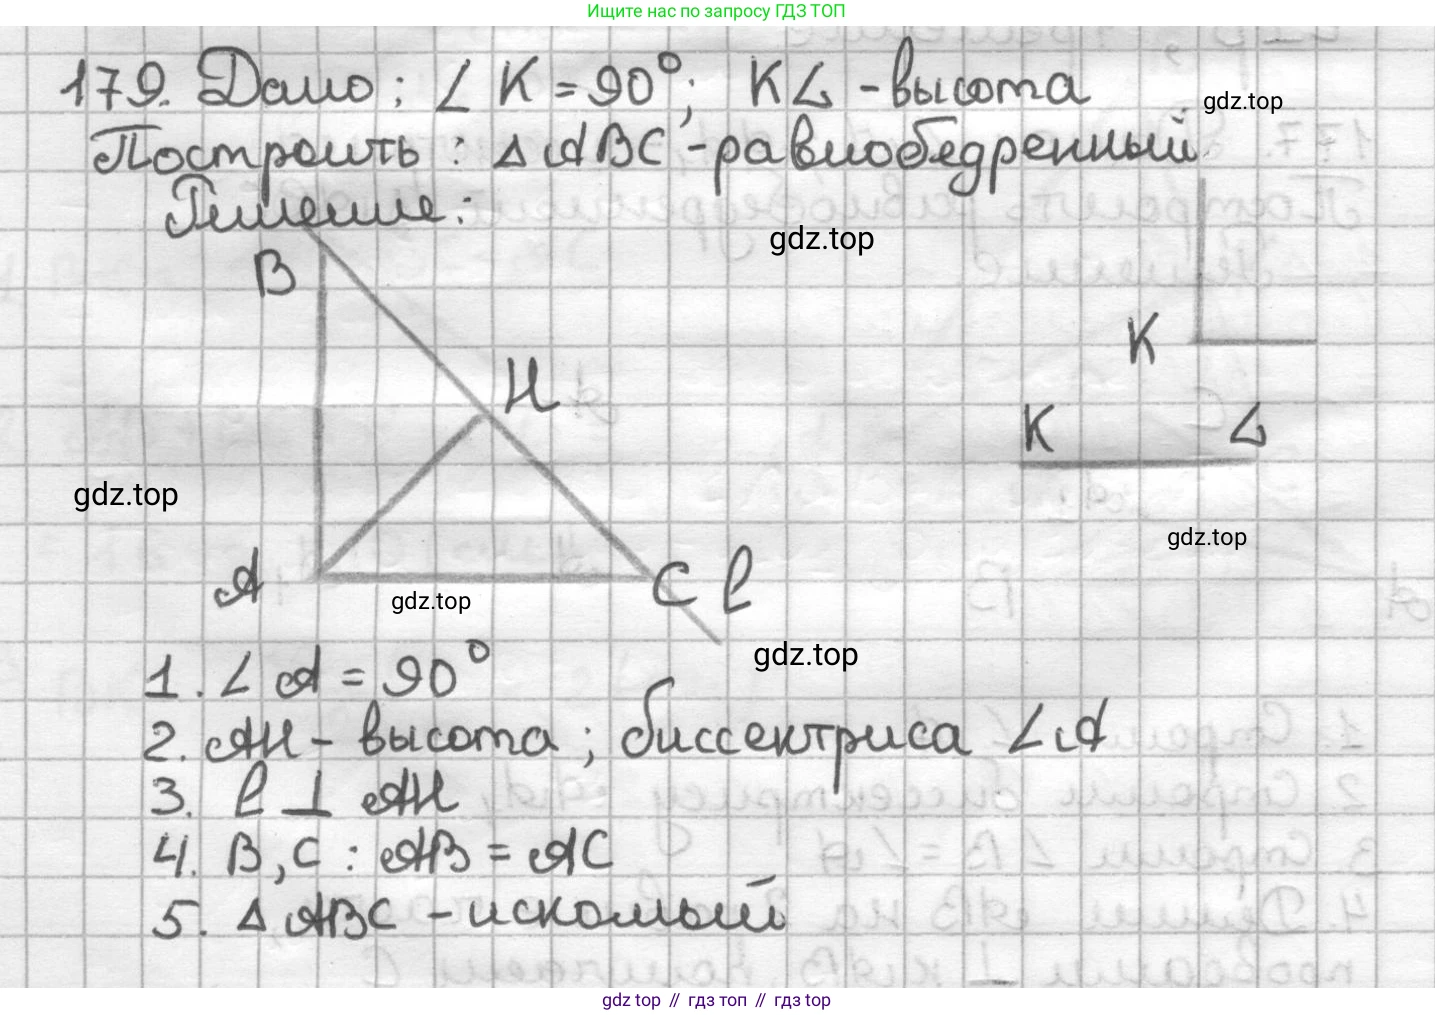 Ищите нас по запросу ГДЗ ТОП
179. Дано: ∠ K = 90°; KL - высота
gdz.top
Построить: △ ABC - равнобедренный.
Решение:
gdz.top
B
K
H
K L
gdz.top
gdz.top
A
C l
gdz.top
gdz.top
1. ∠ A = 90°
2. AH - высота; биссектриса ∠A
3. l ⊥ AH
4. B, C : AB = AC
5. △ ABC - искомый
gdz top // гдз топ // gdz top